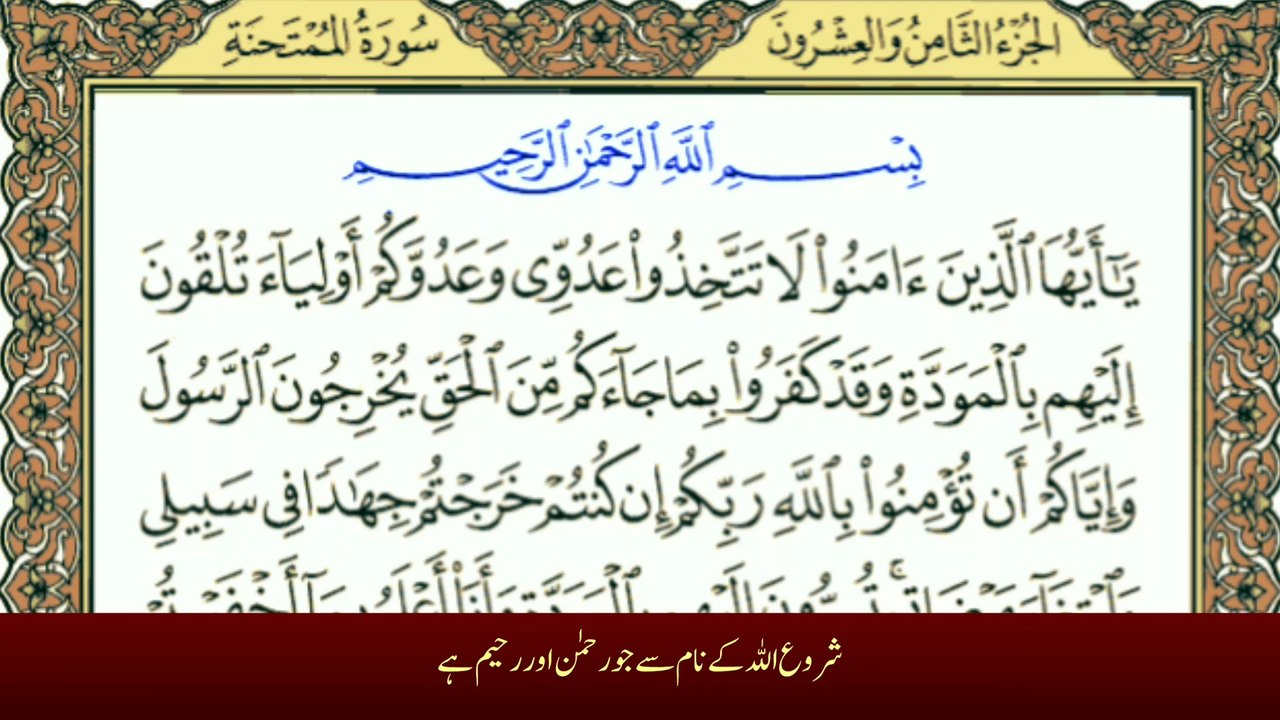 الجُزْءُ الثَّامِنُ وَالعِشْرُونَ
سُورَةُ المُمْتَحنَةِ
بِسْمِ ٱللَّهِ ٱلرَّحْمَٰنِ ٱلرَّحِيمِ
يَٰٓأَيُّهَا ٱلَّذِينَ ءَامَنُوا۟ لَا تَتَّخِذُوا۟ عَدُوِّى وَعَدُوَّكُمْ أَوْلِيَآءَ تُلْقُونَ
إِلَيْهِم بِٱلْمَوَدَّةِ وَقَدْ كَفَرُوا۟ بِمَا جَآءَكُم مِّنَ ٱلْحَقِّ يُخْرِجُونَ ٱلرَّسُولَ
وَإِيَّاكُمْ أَن تُؤْمِنُوا۟ بِٱللَّهِ رَبِّكُمْ إِن كُنتُمْ خَرَجْتُمْ جِهَٰدًا فِى سَبِيلِى
شروع اللہ کے نام سے جو رحمٰن اور رحیم ہے